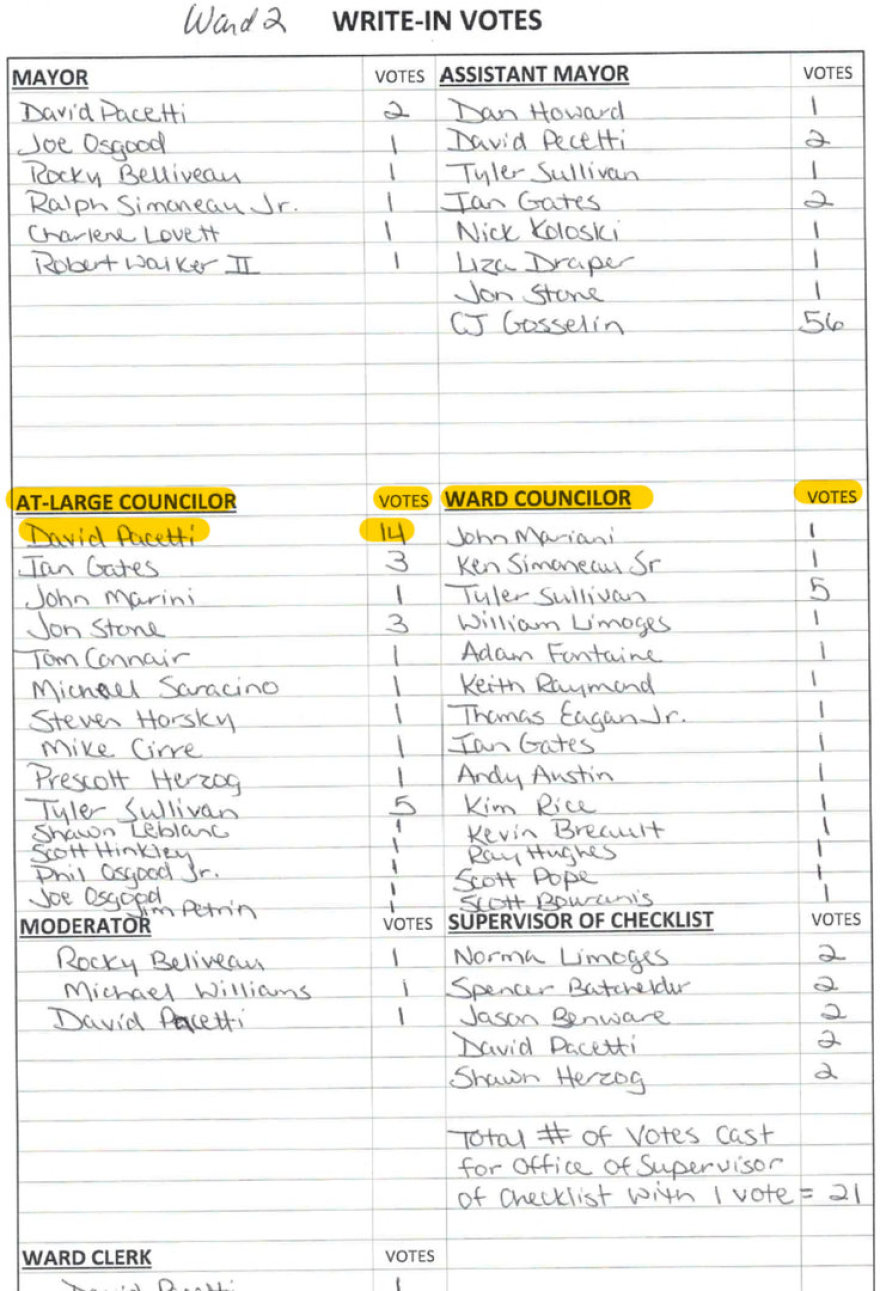 Ward 2 WRITE-IN VOTES
MAYOR VOTES
David Pacetti 2
Joe Osgood 1
Rocky Belliveau 1
Ralph Simoneau Jr. 1
Charlene Lovett 1
Robert Walker II 1
ASSISTANT MAYOR VOTES
Dan Howard 1
David Pecetti 2
Tyler Sullivan 1
Ian Gates 2
Nick Koloski 1
Liza Draper 1
Jon Stone 1
CJ Gosselin 56
AT-LARGE COUNCILOR VOTES
David Pacetti 14
Ian Gates 3
John Marini 1
Jon Stone 3
Tom Connair 1
Michael Saracino 1
Steven Horsky 1
Mike Cirre 1
Prescott Herzog 1
Tyler Sullivan 5
Shawn Leblanc 1
Scott Hinkley 1
Phil Osgood Jr. 1
Joe Osgood 1
Jim Petrin 1
WARD COUNCILOR VOTES
John Mariani 1
Ken Simoneau Sr 1
Tyler Sullivan 5
William Limoges 1
Adam Fontaine 1
Keith Raymond 1
Thomas Eagan Jr. 1
Ian Gates 1
Andy Austin 1
Kim Rice 1
Kevin Breault 1
Ray Hughes 1
Scott Pope 1
Scott Bouranis 1
MODERATOR VOTES
Rocky Beliveau 1
Michael Williams 1
David Pacetti 1
SUPERVISOR OF CHECKLIST VOTES
Norma Limoges 2
Spencer Batchelder 2
Jason Benware 2
David Pacetti 2
Shawn Herzog 2
Total # of Votes Cast
for Office of Supervisor
of Checklist with 1 vote = 21
WARD CLERK VOTES
David Pacetti 1